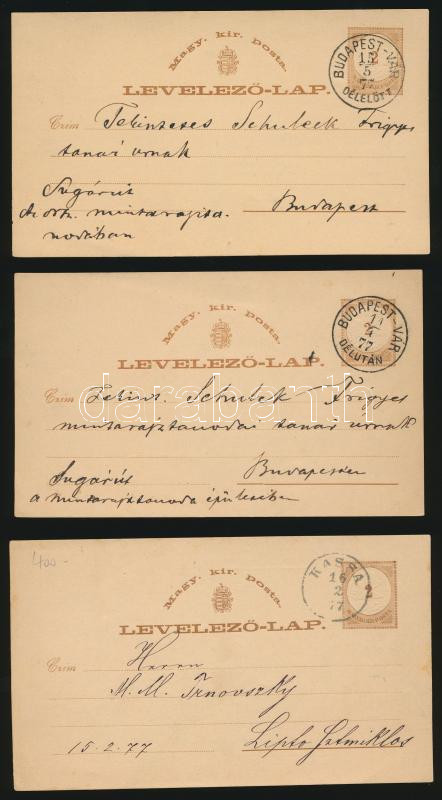 Magy. kir. posta.
BUDAPEST-VÁR
12
5
77
DÉLELŐTT
LEVELEZŐ-LAP.
Czim Tekintetes Schuleck Frigyes
tanár urnak
Sugárút
Az orsz. mintarajzta-
Budapest
nodában
Magy. kir. posta.
BUDAPEST-VÁR
11
4
77
DÉLUTÁN
LEVELEZŐ-LAP.
Czim Tekint. Schulek Frigyes
mintarajztanodai tanár urnak
Sugárút
Budapesten
a mintarajztanoda épületében
darabanth
400-
Magy. kir. posta.
KASSA
16
2
77
2
LEVELEZŐ-LAP.
Czim Herrn
M. M. Trnovszky
15.2.77
Lipto Sztmiklos